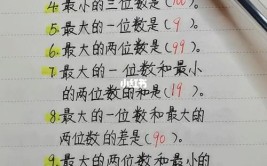 4.最小的三位数是(100)。
5.最大的一位数是(9)。
6.最大的两位数是(99)。
7.最大的一位数和最小
的两位数的和是(19)。
8.最大的一位数和最大的
两位数的差是(90)。
9.最大的两位数和最小的
小红书